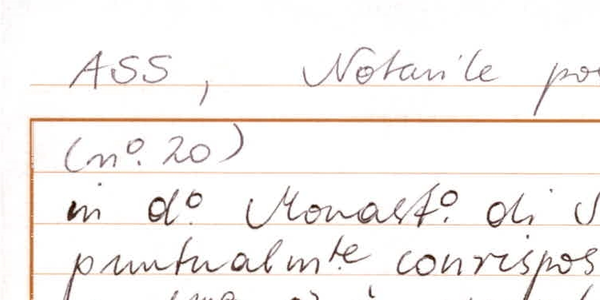 ASS, Notarile po
(nº. 20)
in dº. Monastº. di S
puntualmte corrispos